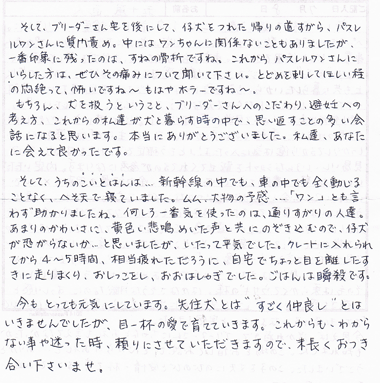 そして、ブリーダーさん宅を後にして、仔犬をつれた帰りの道すがら、パスレ
ルワンさんに質問責め。中にはワンちゃんに関係ないこともありましたが、
一番印象に残ったのは、すねの骨折ですね。これからパスレルワンさんに
いらした方は、ぜひその痛みについて聞いて下さい。とどめを刺してほしい程
の悶絶って、怖いですね〜 もはやホラーですね〜。
もちろん、犬を扱うということ、ブリーダーさんへのこだわり、避妊への
考え方、これからの私達が犬と暮らす時の中で、思い返すことの多い会
話になると思います。本当にありがとうございました。私達、あなた
に会えて良かったです。
そして、うちのこいとはんは… 新幹線の中でも、車の中でも全く動じる
ことなく、へそ天で寝ていました。ムム、大物の予感…"ワン"とも言
わず助かりましたね。何しろ一番気を使ったのは、通りすがりの人達。
あまりのかわいさに、黄色い悲鳴めいた声と共にのぞき込むので、仔犬
が恐がらないか…と思いましたが、いたって平気でした。クレートに入れられ
てから4〜5時間、相当疲れただろうに、自宅でちょっと目を離したす
きに走りまくり、おしっこをし、おおはしゃぎでした。ごはんは瞬殺です。
今も とっても元気にしています。先住犬とは"すごく仲良し"とは
いきませんでしたが、目一杯の愛で育てていきます。これからも、わから
ない事や迷った時、頼りにさせていただきますので、末長くおつき
合い下さいませ。